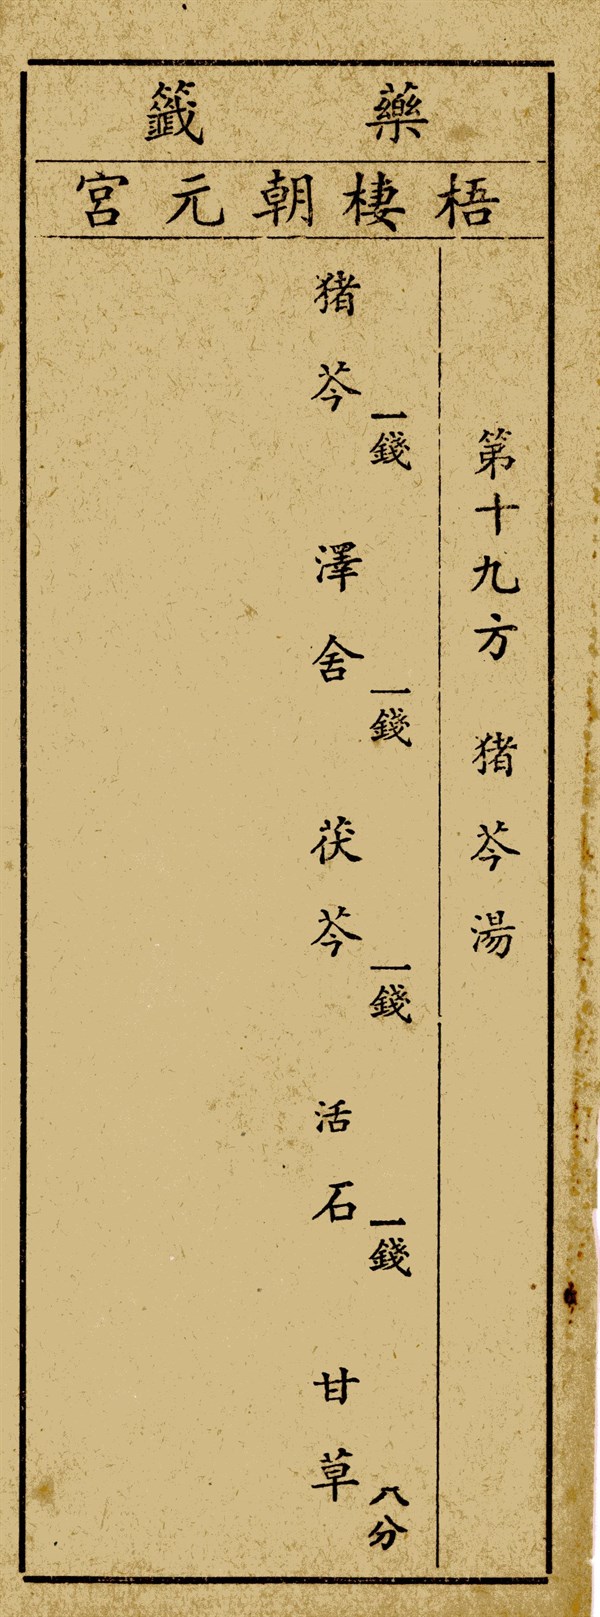 藥籤
梧棲朝元宮
第十九方 猪芩湯
猪芩一錢 澤舍一錢 茯芩一錢 活石一錢 甘草八分